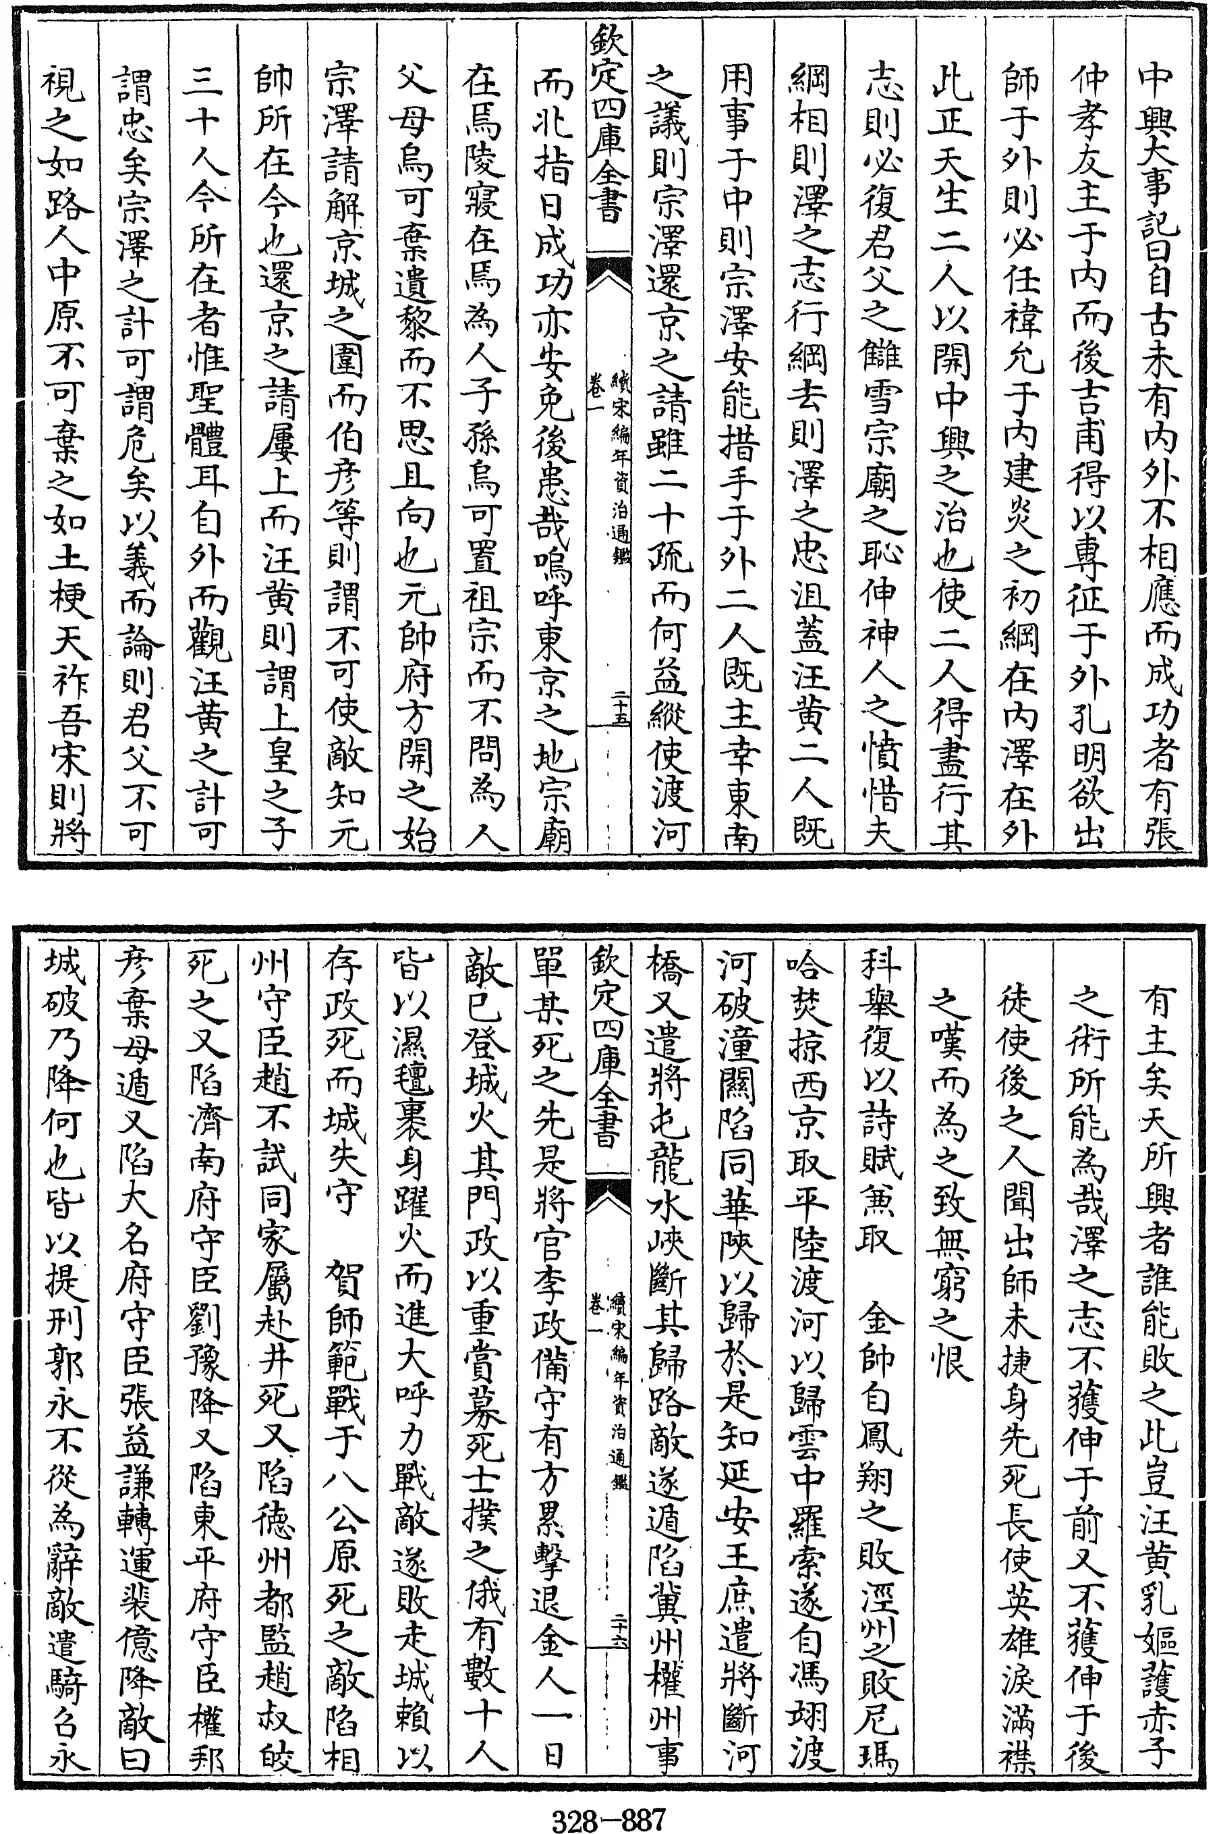 中興大事記曰自古未有内外不相應而成功者有張
仲孝友主于内而後吉甫得以專征于外孔明欲出
師于外則必任禕允于内建炎之初綱在内澤在外
此正天生二人以開中興之治也使二人得盡行其
志則必復君父之讎雪宗廟之恥伸神人之憤惜夫
綱相則澤之志行綱去則澤之忠沮蓋汪黄二人既
用事于中則宗澤安能措手于外二人既主幸東南
之議則宗澤還京之請雖二十疏而何益縱使渡河
欽定四庫全書
續宋編年資治通鑑
卷一
二十五
而北指日成功亦安免後患哉嗚呼東京之地宗廟
在焉陵寢在焉為人子孫烏可置祖宗而不問為人
父母烏可棄遺黎而不思且向也元帥府方開之始
宗澤請解京城之圍而伯彦等則謂不可使敵知元
帥所在今也還京之請屢上而汪黄則謂上皇之子
三十人今所在者惟聖體耳自外而觀汪黄之計可
謂忠矣宗澤之計可謂危矣以義而論則君父不可
視之如路人中原不可棄之如土梗天祚吾宋則將
有主矣天所興者誰能敗之此豈汪黄乳嫗護赤子
之術所能為哉澤之志不獲伸于前又不獲伸于後
徒使後之人聞出師未捷身先死長使英雄淚滿襟
之嘆而為之致無窮之恨
科舉復以詩賦兼取　金帥自鳳翔之敗涇州之敗尼瑪
哈焚掠西京取平陸渡河以歸雲中羅索遂自馮翊渡
河破潼關陷同華陜以歸於是知延安王庶遣將斷河
橋又遣將屯龍水峽斷其歸路敵遂遁陷冀州權州事
欽定四庫全書
續宋編年資治通鑑
卷一
二十六
單某死之先是將官李政備守有方累擊退金人一日
敵已登城火其門政以重賞募死士撲之俄有數十人
皆以濕氊裹身躍火而進大呼力戰敵遂敗走城賴以
存政死而城失守　賀師範戰于八公原死之敵陷相
州守臣趙不試同家屬赴井死又陷德州都監趙叔皎
死之又陷濟南府守臣劉豫降又陷東平府守臣權邦
彦棄母遁又陷大名府守臣張益謙轉運裴億降敵曰
城破乃降何也皆以提刑郭永不從為辭敵遣騎召永
328-887